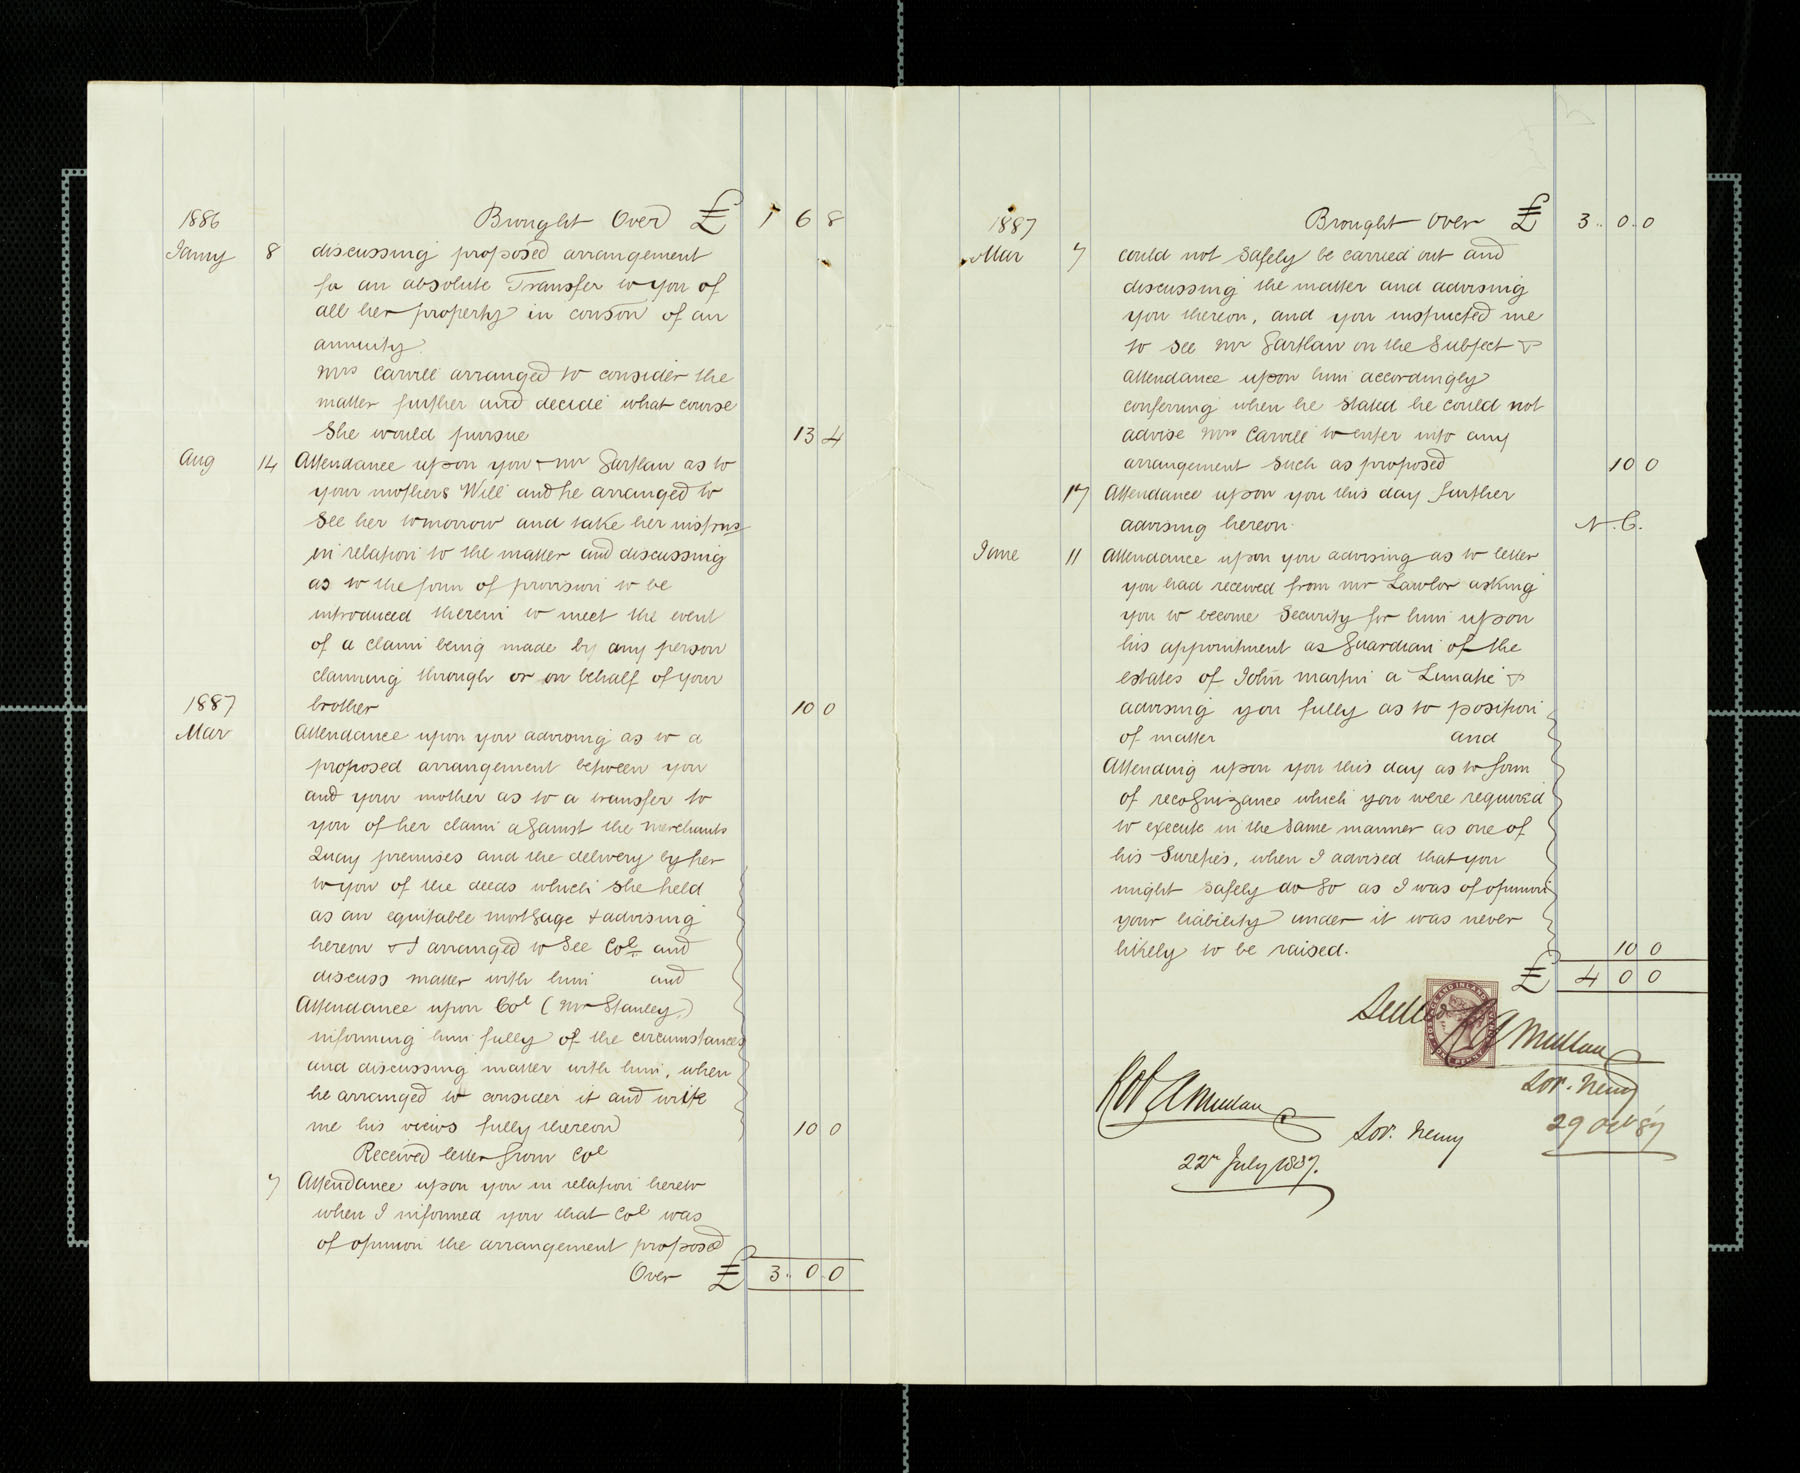 1886 Brought Over £ 1 6 8
Jany 8 discussing proposed arrangement
for an absolute Transfer to you of
all her property in conson of an
annuity.
Mrs Carvill arranged to consider the
matter further and decide what course
she would pursue 13 4
Aug 14 Attendance upon you & Mr Gartlan as to
your mothers Will and he arranged to
see her tomorrow and take her instrns
in relation to the matter and discussing
as to the form of provision to be
introduced therein to meet the event
of a claim being made by any person
claiming through or on behalf of your
1887 brother 10 0
Mar Attendance upon you advising as to a
proposed arrangement between you
and your mother as to a transfer to
you of her claim against the Merchants
Quay premises and the delivery by her
to you of the deeds which she held
as an equitable mortgage & advising
hereon & I arranged to see Col and
discuss matter with him and
Attendance upon Col (Mr Stanley)
informing him fully of the circumstances
and discussing matter with him, when
he arranged to consider it and write
me his views fully thereon 10 0
Received letter from Col
7 Attendance upon you in relation hereto
when I informed you that Col was
of opinion the arrangement proposed
Over £ 3. 0. 0
1887 Brought Over £ 3.. 0. 0
Mar 7 could not safely be carried out and
discussing the matter and advising
you thereon, and you instructed me
to see Mr Gartlan on the Subject &
attendance upon him accordingly
conferring when he stated he could not
advise Mrs Carvill to enter into any
arrangement such as proposed 10 0
17 Attendance upon you this day further
advising hereon. N.C.
June 11 Attendance upon you advising as to letter
you had received from Mr Lawlor asking
you to become Security for him upon
his appointment as Guardian of the
estates of John Martin a Lunatic &
advising you fully as to position
of matter and
Attending upon you this day as to form
of recognizance which you were required
to execute in the same manner as one of
his Sureties, when I advised that you
might safely do so as I was of opinion
your liability under it was never
likely to be raised. 10 0
£ 4 0 0
R A Mullan
Sor. Newry
29 Oct 87
Robt A Mullan
Sor. Newry
22n July 1887.